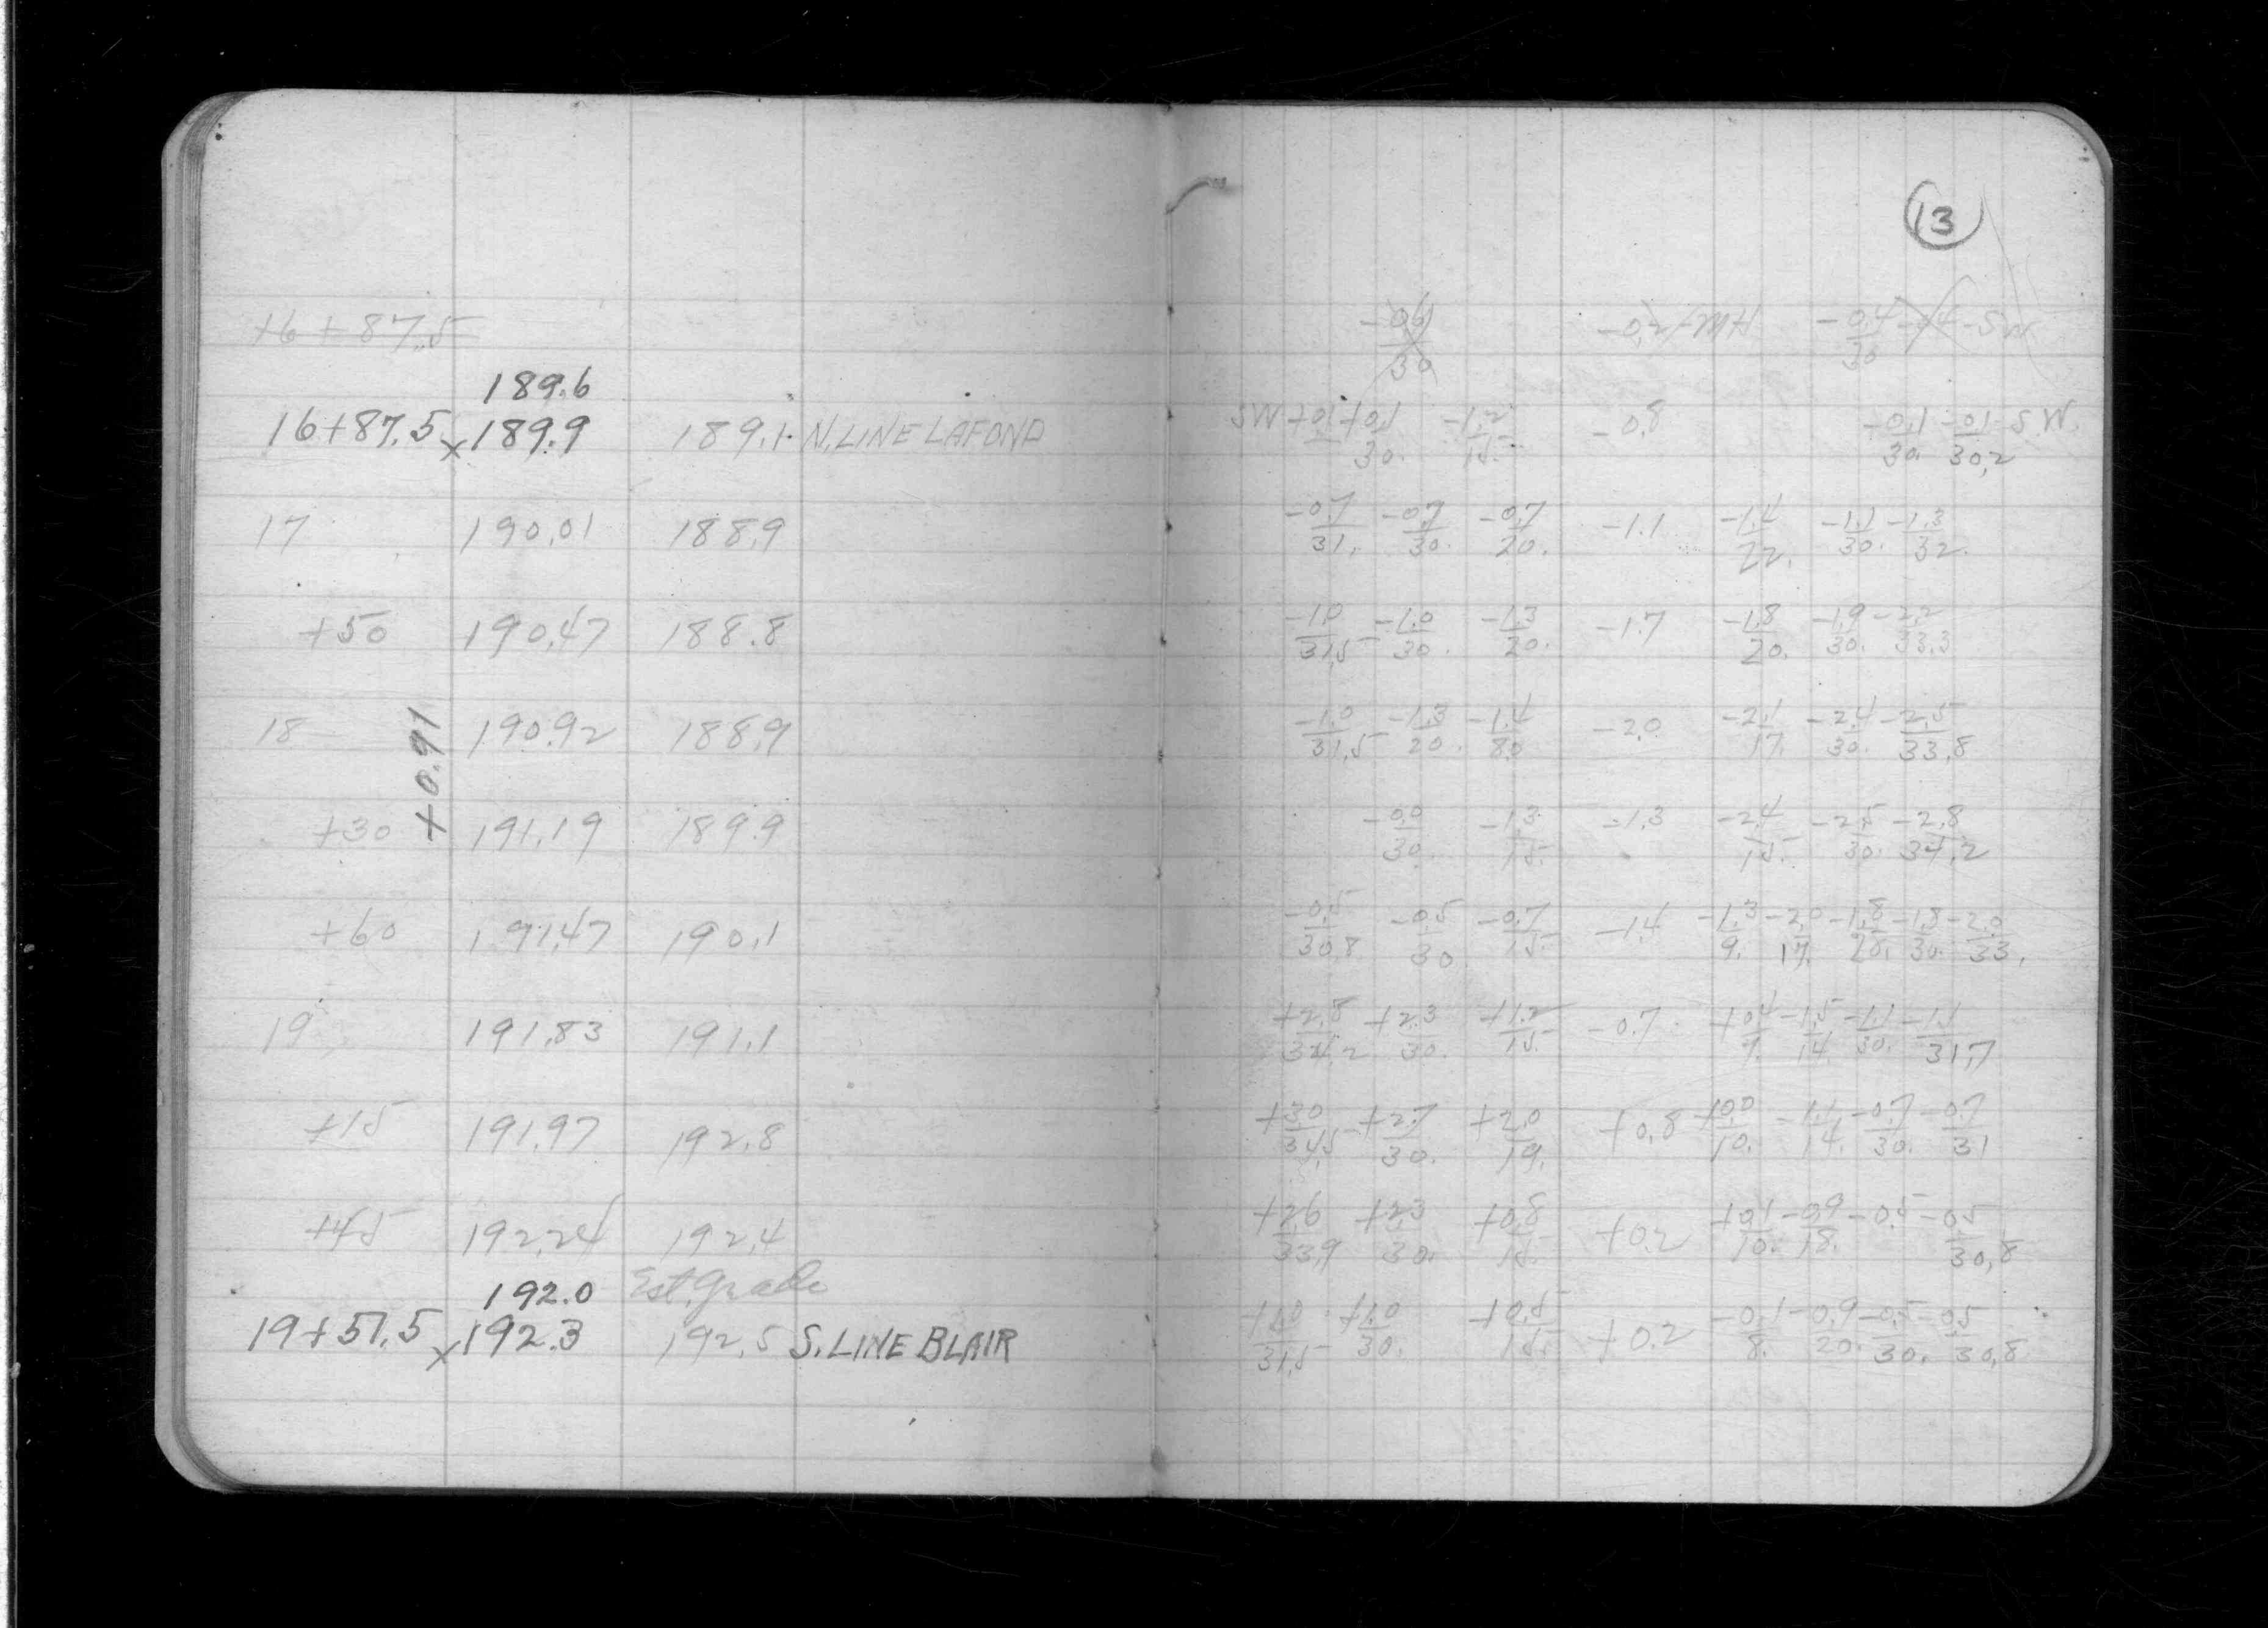 13
16+87.5 -0.6/30 -0.2-MH -0.4/30 -.4-SW
189.6
16+87.5 x189.9 189.1 N.LINE LAFOND SW+0.1 +0.1/30. -1.2/15. -0.8 -0.1/30. -0.1/30.2-S.W.
17 190.01 188.9 -0.7/31. -0.7/30. -0.7/20. -1.1 -1.4/22. -1.1/30. -1.3/32.
+50 190.47 188.8 -1.0/31.5 -1.0/30. -1.3/20. -1.7 -1.8/20. -1.9/30. -2.2/33.3
18 190.92 188.9 -1.0/31.5 -1.3/20. -1.4/8.0 -2.0 -2.1/17. -2.4/30. -2.5/33.8
+0.91
+30 191.19 189.9 -0.0/30. -1.3/15. -1.3 -2.4/15. -2.5/30. -2.8/34.2
+60 191.47 190.1 -0.5/30.8 -0.5/30 -0.7/15. -1.4 -1.3/9. -2.0/17. -1.8/28. -1.8/30. -2.0/33.
19 191.83 191.1 +2.8/34.2 +2.3/30. +1.2/15. -0.7 +0.4/7. -1.5/14. -1.1/30. -1.1/31.7
+15 191.97 192.8 +3.0/34.5 +2.7/30. +2.0/19. +0.8 +0.0/10. -1.1/14. -0.7/30. -0.7/31
+45 192.24 192.4 +2.6/33.9 +2.3/30. +0.8/15. +0.2 +0.1/10. -0.9/18. -0.5 -0.5/30.8
192.0 Est. Grade
19+57.5 x192.3 192.5 S.LINE BLAIR +1.0/31.5 +1.0/30. +0.5/15. +0.2 -0.1/8. -0.9/20. -0.5/30. -0.5/30.8